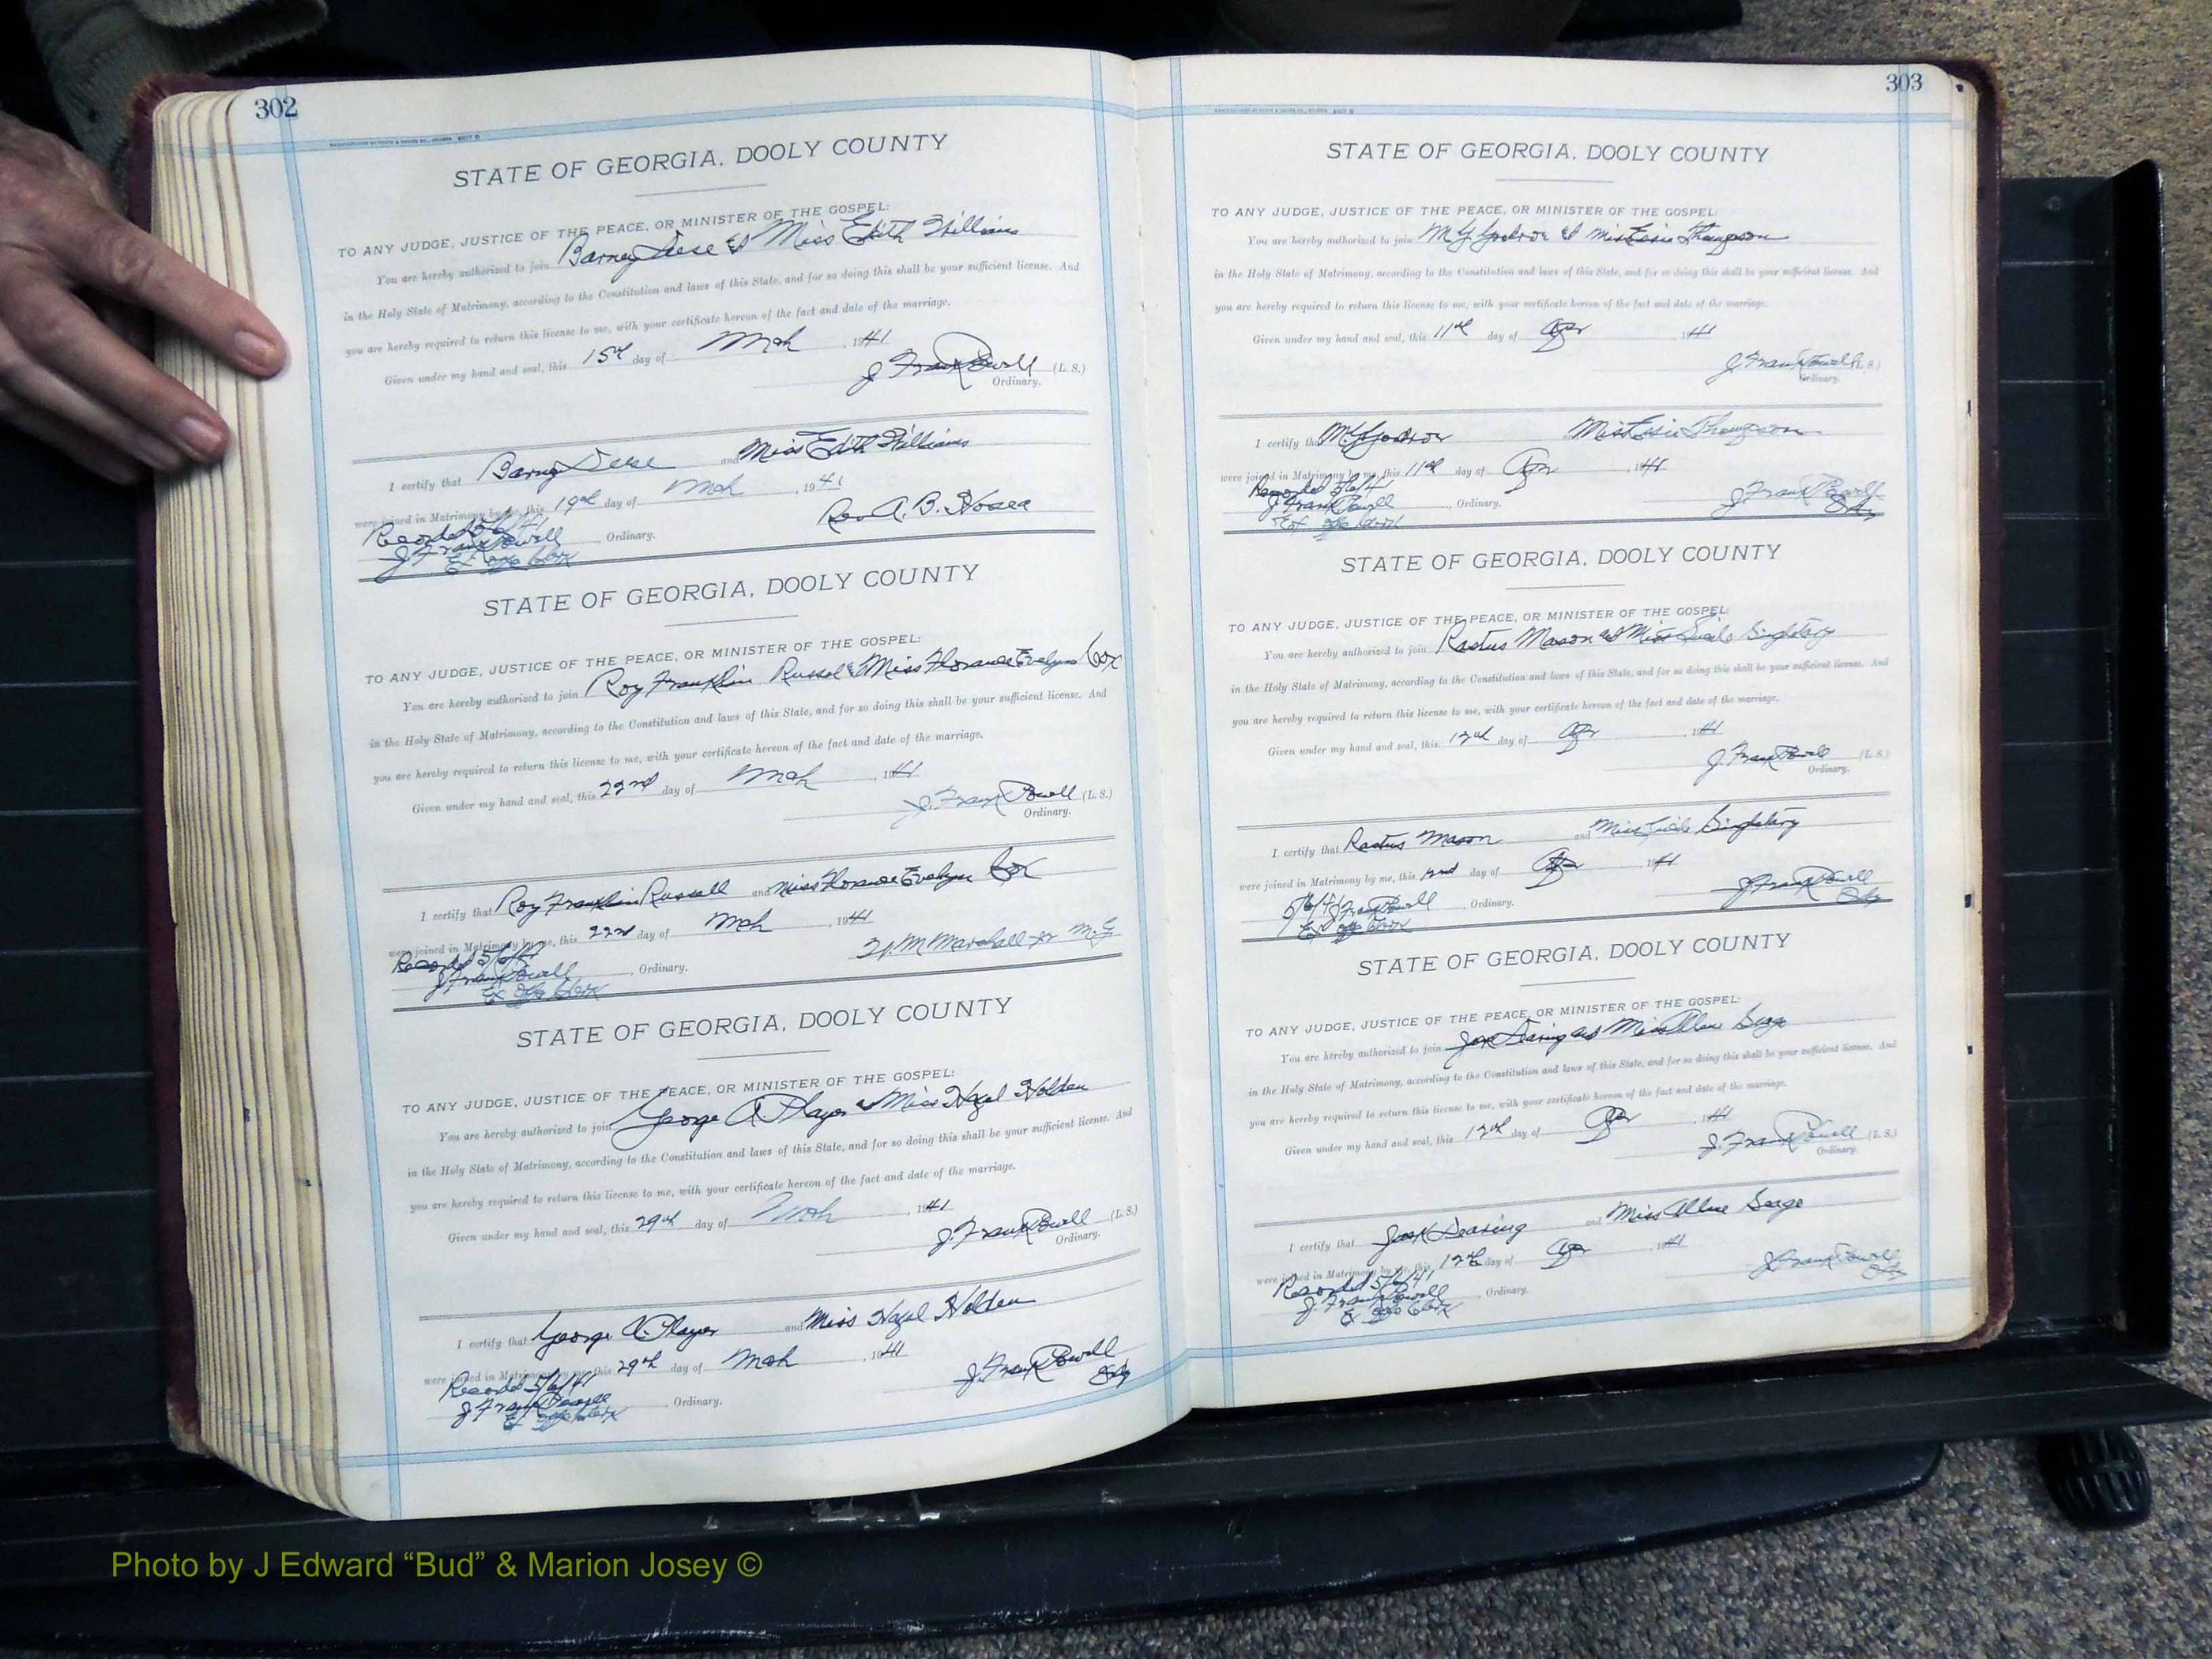 302
STATE OF GEORGIA, DOOLY COUNTY
TO ANY JUDGE, JUSTICE OF THE PEACE, OR MINISTER OF THE GOSPEL:
You are hereby authorized to join Barney Deese & Miss Edith Williams
in the Holy State of Matrimony, according to the Constitution and laws of this State, and for so doing this shall be your sufficient license. And
you are hereby required to return this license to me, with your certificate hereon of the fact and date of the marriage.
Given under my hand and seal, this 15th day of Mch, 1941
J. Frank Powell (L. S.)
Ordinary.
I certify that Barney Deese and Miss Edith Williams
were joined in Matrimony by me, this 19th day of Mch, 1941
Rev A. B. Hosea
Recorded 5/6/41
J. Frank Powell, Ordinary.
Ex off Clerk
STATE OF GEORGIA, DOOLY COUNTY
TO ANY JUDGE, JUSTICE OF THE PEACE, OR MINISTER OF THE GOSPEL:
You are hereby authorized to join Roy Franklin Russel & Miss Florance Evelyn Cox
in the Holy State of Matrimony, according to the Constitution and laws of this State, and for so doing this shall be your sufficient license. And
you are hereby required to return this license to me, with your certificate hereon of the fact and date of the marriage.
Given under my hand and seal, this 22nd day of Mch, 1941
J. Frank Powell (L. S.)
Ordinary.
I certify that Roy Franklin Russell and Miss Florance Evelyn Cox
were joined in Matrimony by me, this 22nd day of Mch, 1941
M Marshall Jr M.G.
Recorded 5/6/41
J Frank Powell, Ordinary.
Ex off Clerk
STATE OF GEORGIA, DOOLY COUNTY
TO ANY JUDGE, JUSTICE OF THE PEACE, OR MINISTER OF THE GOSPEL:
You are hereby authorized to join George A Player & Miss Hazel Holden
in the Holy State of Matrimony, according to the Constitution and laws of this State, and for so doing this shall be your sufficient license. And
you are hereby required to return this license to me, with your certificate hereon of the fact and date of the marriage.
Given under my hand and seal, this 29th day of Mch, 1941
J. Frank Powell (L. S.)
Ordinary.
I certify that George A. Player and Miss Hazel Holden
were joined in Matrimony by me, this 29th day of Mch, 1941
J. Frank Powell
Ordy
Recorded 5/6/41
J Frank Powell, Ordinary.
Ex off Clerk
303
STATE OF GEORGIA, DOOLY COUNTY
TO ANY JUDGE, JUSTICE OF THE PEACE, OR MINISTER OF THE GOSPEL:
You are hereby authorized to join & Miss Essie Thompson
in the Holy State of Matrimony, according to the Constitution and laws of this State, and for so doing this shall be your sufficient license. And
you are hereby required to return this license to me, with your certificate hereon of the fact and date of the marriage.
Given under my hand and seal, this 11th day of Apr, 1941
J Frank Powell (L. S.)
Ordinary.
I certify that and Miss Essie Thompson
were joined in Matrimony by me, this 11th day of Apr, 1941
J Frank Powell
Ordy
Recorded 5/6/41
J Frank Powell, Ordinary.
Ex off Clerk
STATE OF GEORGIA, DOOLY COUNTY
TO ANY JUDGE, JUSTICE OF THE PEACE, OR MINISTER OF THE GOSPEL:
You are hereby authorized to join Rastus Mason & Miss Singletary
in the Holy State of Matrimony, according to the Constitution and laws of this State, and for so doing this shall be your sufficient license. And
you are hereby required to return this license to me, with your certificate hereon of the fact and date of the marriage.
Given under my hand and seal, this 12th day of Apr, 1941
J. Frank Powell (L. S.)
Ordinary.
I certify that Rastus Mason and Miss Singletary
were joined in Matrimony by me, this 12nd day of Apr, 1941
J Frank Powell
Ordy
5/6/41 J Frank Powell, Ordinary.
Ex off Clerk
STATE OF GEORGIA, DOOLY COUNTY
TO ANY JUDGE, JUSTICE OF THE PEACE, OR MINISTER OF THE GOSPEL:
You are hereby authorized to join Jack Dearing & Miss Allene Seago
in the Holy State of Matrimony, according to the Constitution and laws of this State, and for so doing this shall be your sufficient license. And
you are hereby required to return this license to me, with your certificate hereon of the fact and date of the marriage.
Given under my hand and seal, this 12th day of Apr, 1941
J. Frank Powell (L. S.)
Ordinary.
I certify that Jack Dearing and Miss Allene Seago
were joined in Matrimony by me, this 12th day of Apr, 1941
J Frank Powell
Ordy
Recorded 5/6/41
J. Frank Powell, Ordinary.
Ex off Clerk
Photo by J Edward “Bud” & Marion Josey ©